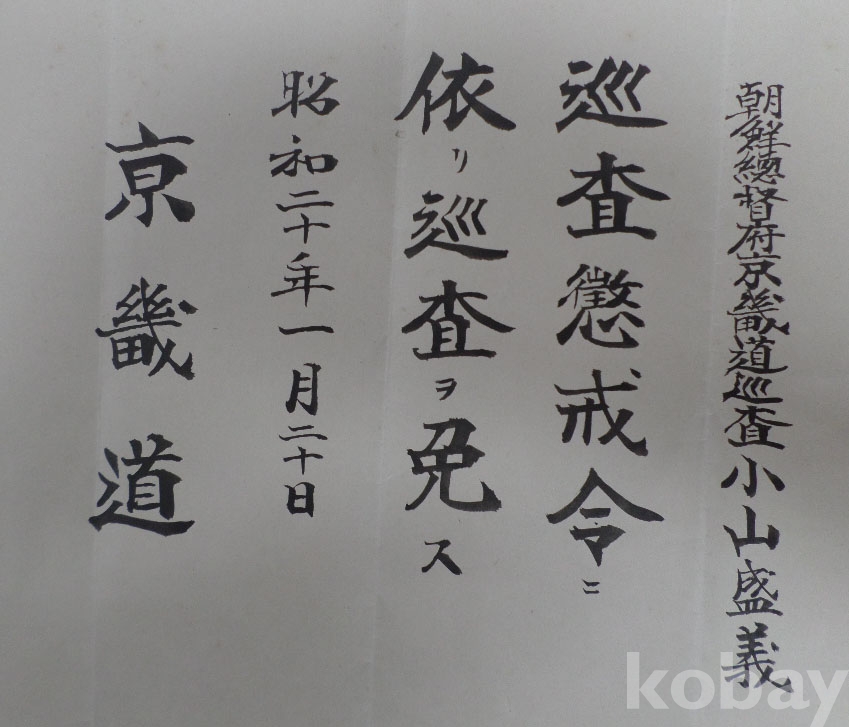 朝鮮總督府京畿道巡査小山盛義
巡査懲戒令ニ
依リ巡査ヲ免ス
昭和二十年一月二十日
京畿道
kobay